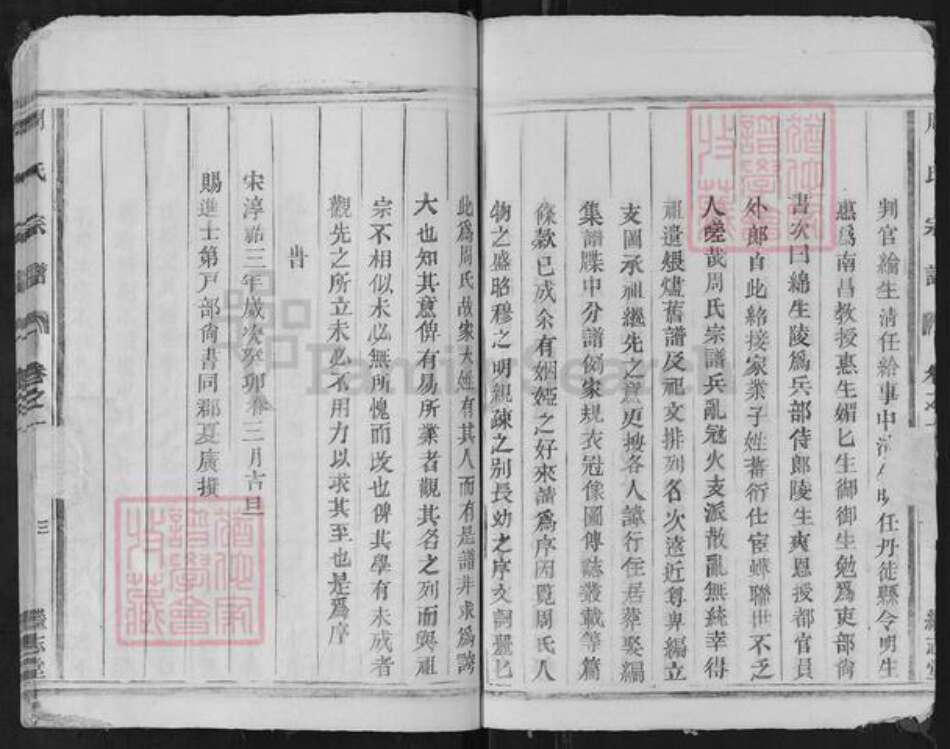 判官綸生清任給事中清生明任丹徒縣令明生
惠爲南昌敎授惠生媚匕生御御生勉爲吏部尙
書次曰綿生陵爲兵部侍郞陵生爽恩授都官員
外郞自此絡接家業子姓蕃衍仕宦蟬聯世不乏
人嗟哉周氏宗譜兵亂寇火支派散亂無統幸得
祖遺煨燼舊譜及祖文排列名次遠近尊卑編立
支圖承祖繼先之意更搜各人諱行住居葬娶編
集譜牒中分譜例家規衣冠像圖傳誌叢載等篇
條款已成余有姻婭之好來請爲序因覽周氏人
物之盛昭穆之明親疎之別長幼之序文詞豐匕
此爲周氏故家大姓有其人而有是譜非求爲誇
大也知其意俾有易所業者觀其名之列而與祖
宗不相似未必無所愧而改也俾其學有未成者
觀先之所立未必不用力以求其至也是爲序
旹
宋淳祐三年歲次癸卯春三月吉旦
賜進士第戸部尙書同郡夏廣撰
周氏宗譜
卷之一
三
繼志堂
FamilySearch